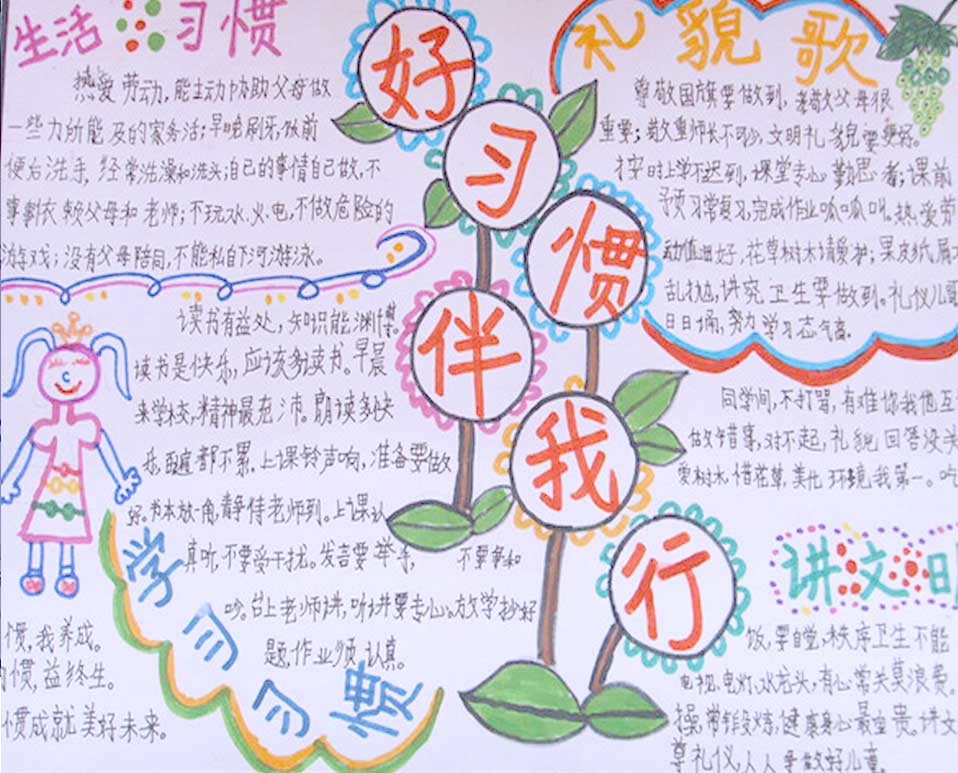 生活习惯
热爱劳动,能主动协助父母做
一些力所能及的家务活;早晚刷牙,饭前
便后洗手,经常洗澡和洗头;自己的事情自己做,不
事事依赖父母和老师;不玩水、火、电,不做危险的
游戏;没有父母陪同,不能私自下河游泳。
好习惯伴我行
礼貌歌
尊敬国旗要做到,孝敬父母很
重要;敬重师长不可少,文明礼貌要更好。
按时上学不迟到,课堂专心勤思考;课前
预习常复习,完成作业呱呱叫。热爱劳
动值日好,花草树木请爱护;果皮纸屑不
乱扔,讲究卫生要做到。礼仪儿歌
日日诵,努力学习志气高。
读书有益处,知识能渊博。
读书是快乐,应该多读书。早晨
来学校,精神最充沛。朗读多快
都不累。上课铃声响,准备要做
好。书本放一角,静待老师到。上课认
真听,不要受干扰。发言要举手,不要争和
吵。台上老师讲,听讲要专心。放学抄好
题,作业须认真。
学习习惯
惯,我养成。
惯,益终生。
惯成就美好未来。
同学间,不打骂,有难你我他互
做错事,对不起,礼貌回答没关
爱树木,惜花草,美化环境我第一。吃
讲文明
饭,要自觉,秩序卫生不能
电视、电灯、水龙头,有心常关莫浪费。
操,常锻炼,健康身心最宝贵。讲文
尊礼仪,人人争做好儿童。